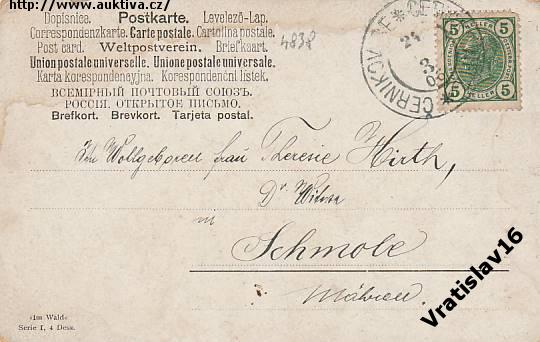 http://www.auktiva.cz
Dopisnice. Postkarte. Levelező-Lap.
Correspondenzkarte. Carte postale. Cartolina postale.
Post card. Weltpostverein. Briefkaart.
Union postale universelle. Unione postale universale.
Karta korespondencyjna. Korespondenční lístek.
ВСЕМІРНЫЙ ПОЧТОВЫЙ СОЮЗЪ.
РОССІЯ. ОТКРЫТОЕ ПИСЬМО.
Brefkort. Brevkort. Tarjeta postal.
4838
ČERNIKOV
24
3
08
5 5
HELLER
5 5
Wohlgeboren Frau Therese Hirth,
Dr Witwe
in
Schmole
Mähren.
»Im Wald«
Serie I, 4 Dess.
Vratislav16